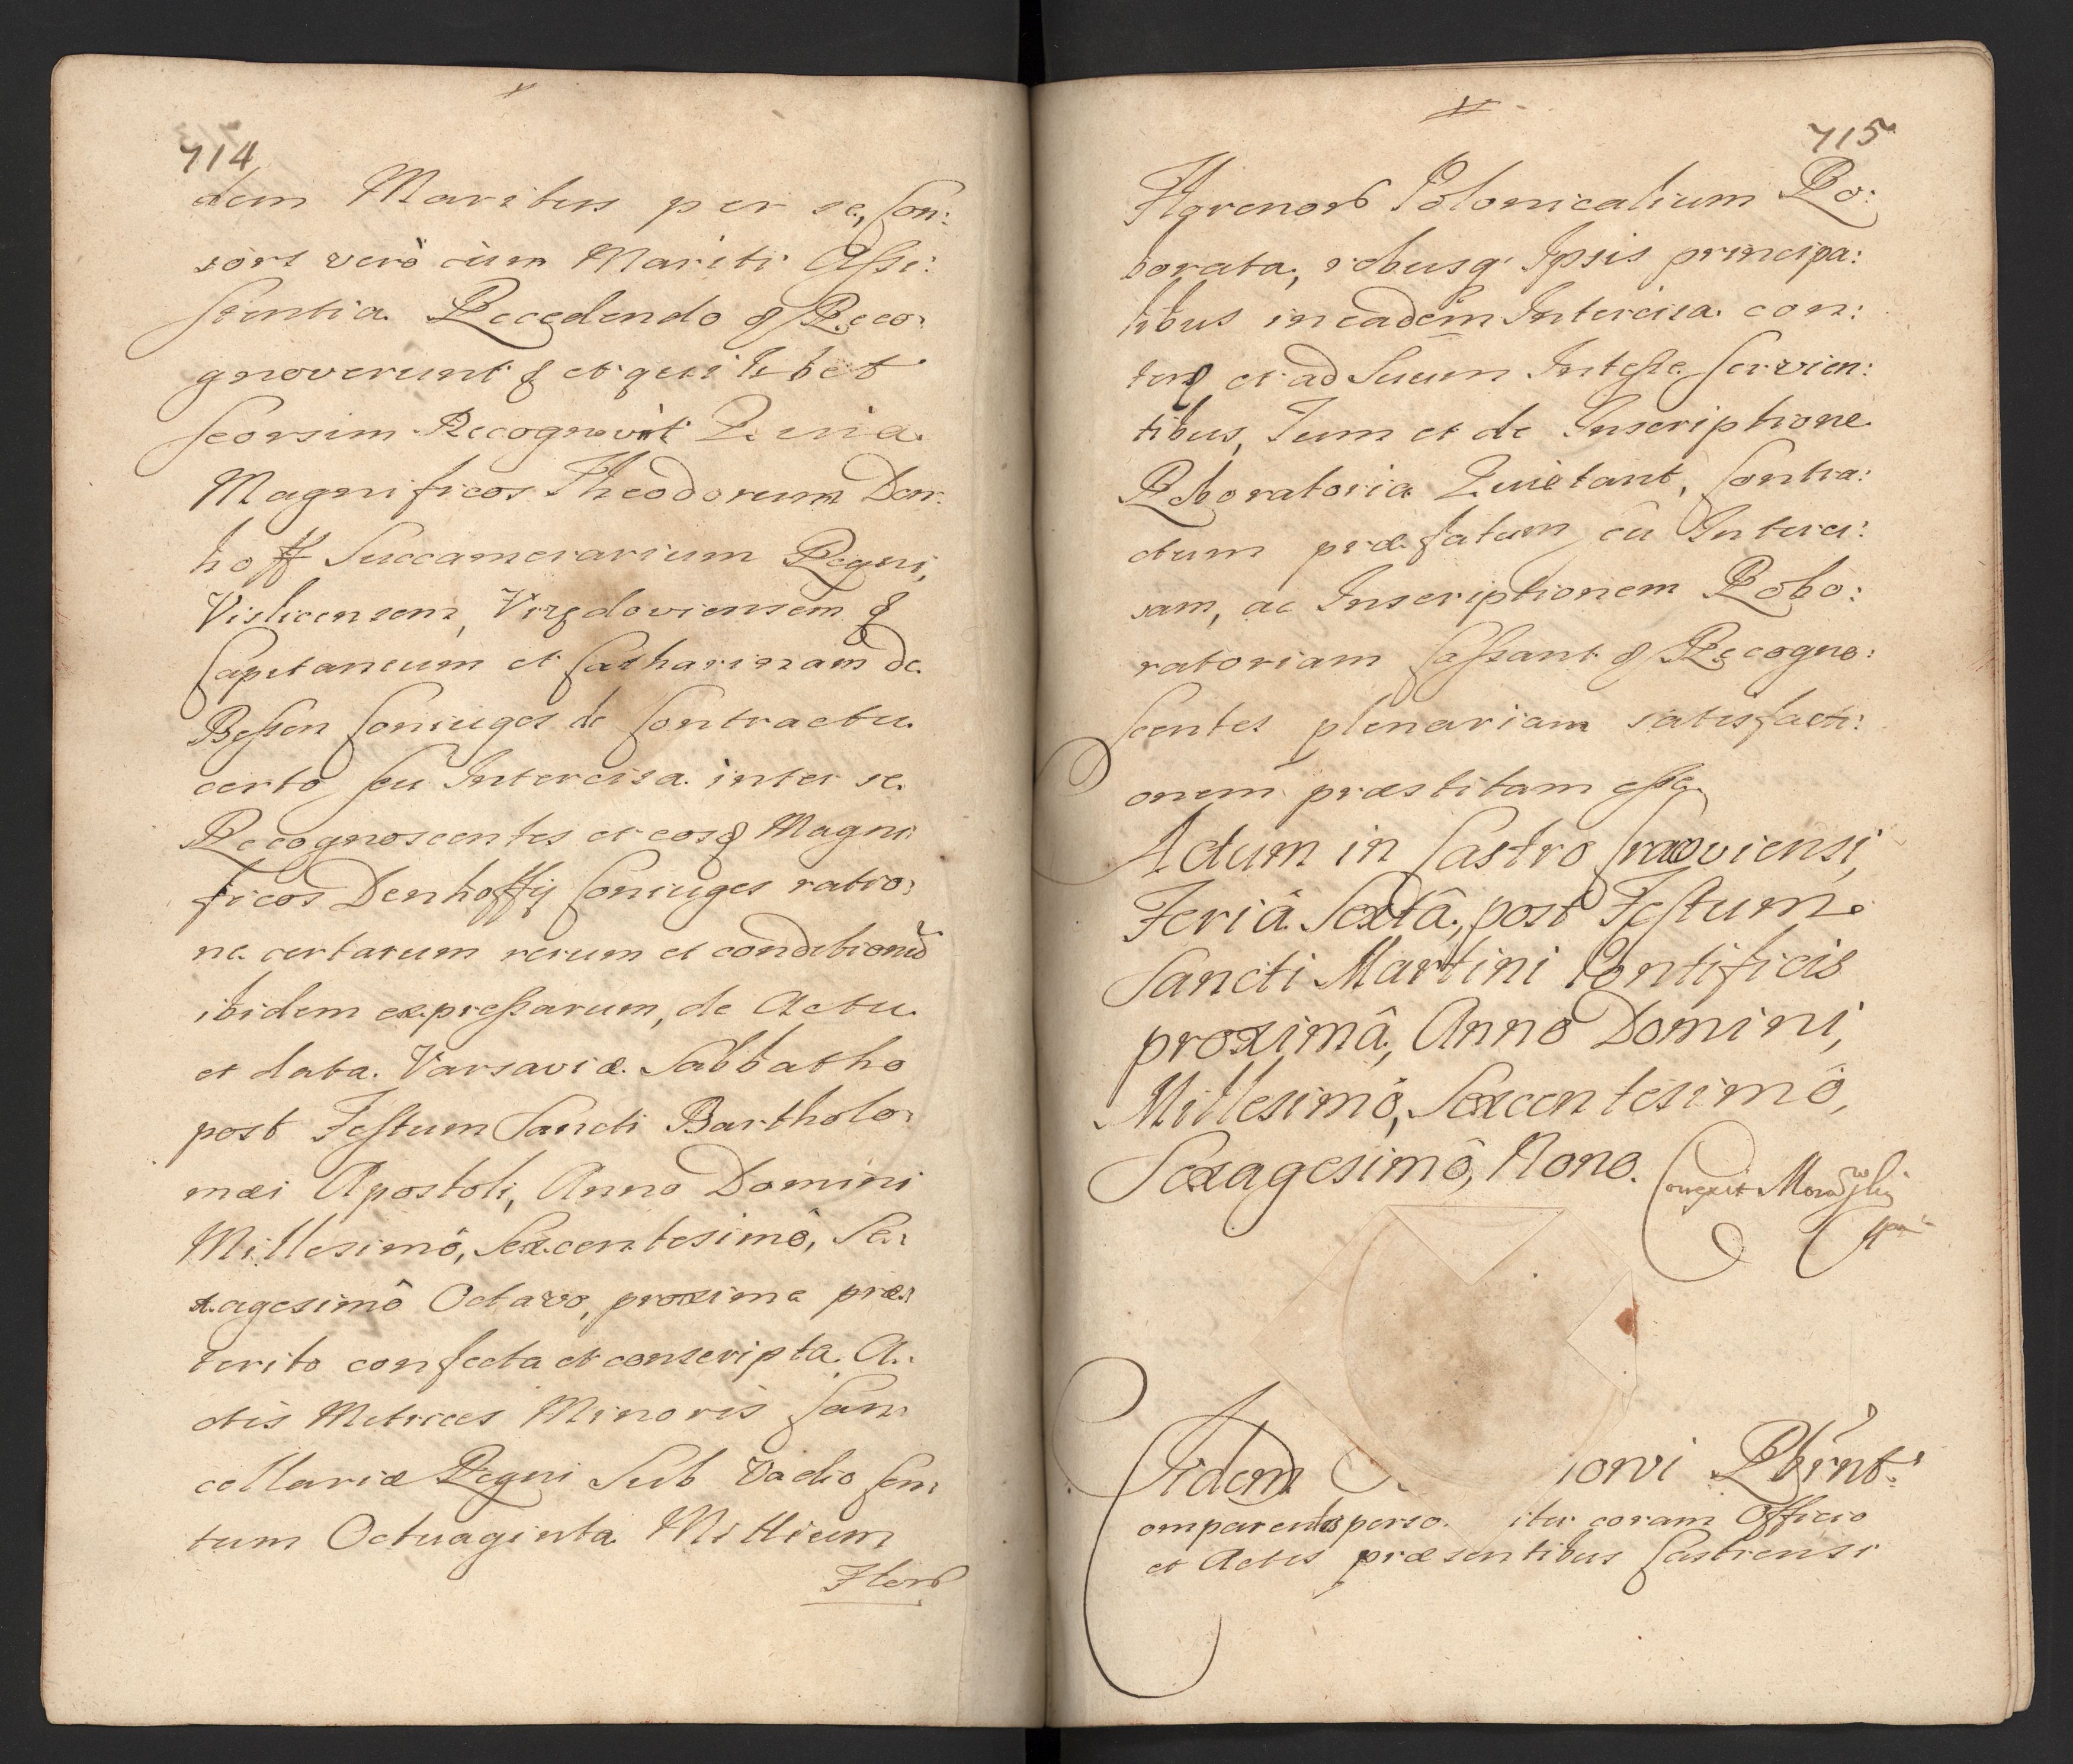 714
dem Maritus per se, Con:
sors verò cùm Mariti Assi:
stentia Recedendo & Reco:
gnoverunt & et quilibet
seorsim Recognovit Quia
Magnificos Theodorum Den:
hoff Succamerarium Regni,
Vislicensem, Vizdoviensem &
Capitaneum et Catharinam de
Bessen Coniuges de Contractu
certo seu Intercisa inter se
Recognoscentes et eosq Magni:
ficos Denhoffÿ Coniuges ratio:
ne certarum rerum et conditionũ
ibidem expressarum, de Actu
et data Varsaviæ Sabbatho
post Festum Sancti Bartholo:
mæi Apostoli, Anno Domini
Millesimô, Sexcentesimô, Se:
xagesimô Octavo, proxime præ:
terito confecta et conscripta A:
ctis Metrices Minoris Can:
cellariæ Regni Sub Vadio Cen:
tum Octuaginta Millium
Flor
715
Florenor Polonicalium Ro:
borata, rebusq Ipsis principa:
libus in eâdem Intercisa con:
ten et ad Suum Intesse servien:
tibus, Tum et de Inscriptione
Roboratoria Quietant, Contra:
ctum præfatum cũ Interci:
sam, ac Inscriptionem Robo:
ratoriam Cassant & Recogno:
scentes plenariam satisfacti:
onem præstitam esse.
Actum in Castro Cracoviensi,
Feriâ Sextâ, post Festum
Sancti Martini Pontificis
proximâ, Anno Domini,
Millesimô, Sexcentesimô,
Sexagesimô, Nono.
Correxit
Iidem
omparentes perso iter coram Officio
et Actis præsentibus Castrensi